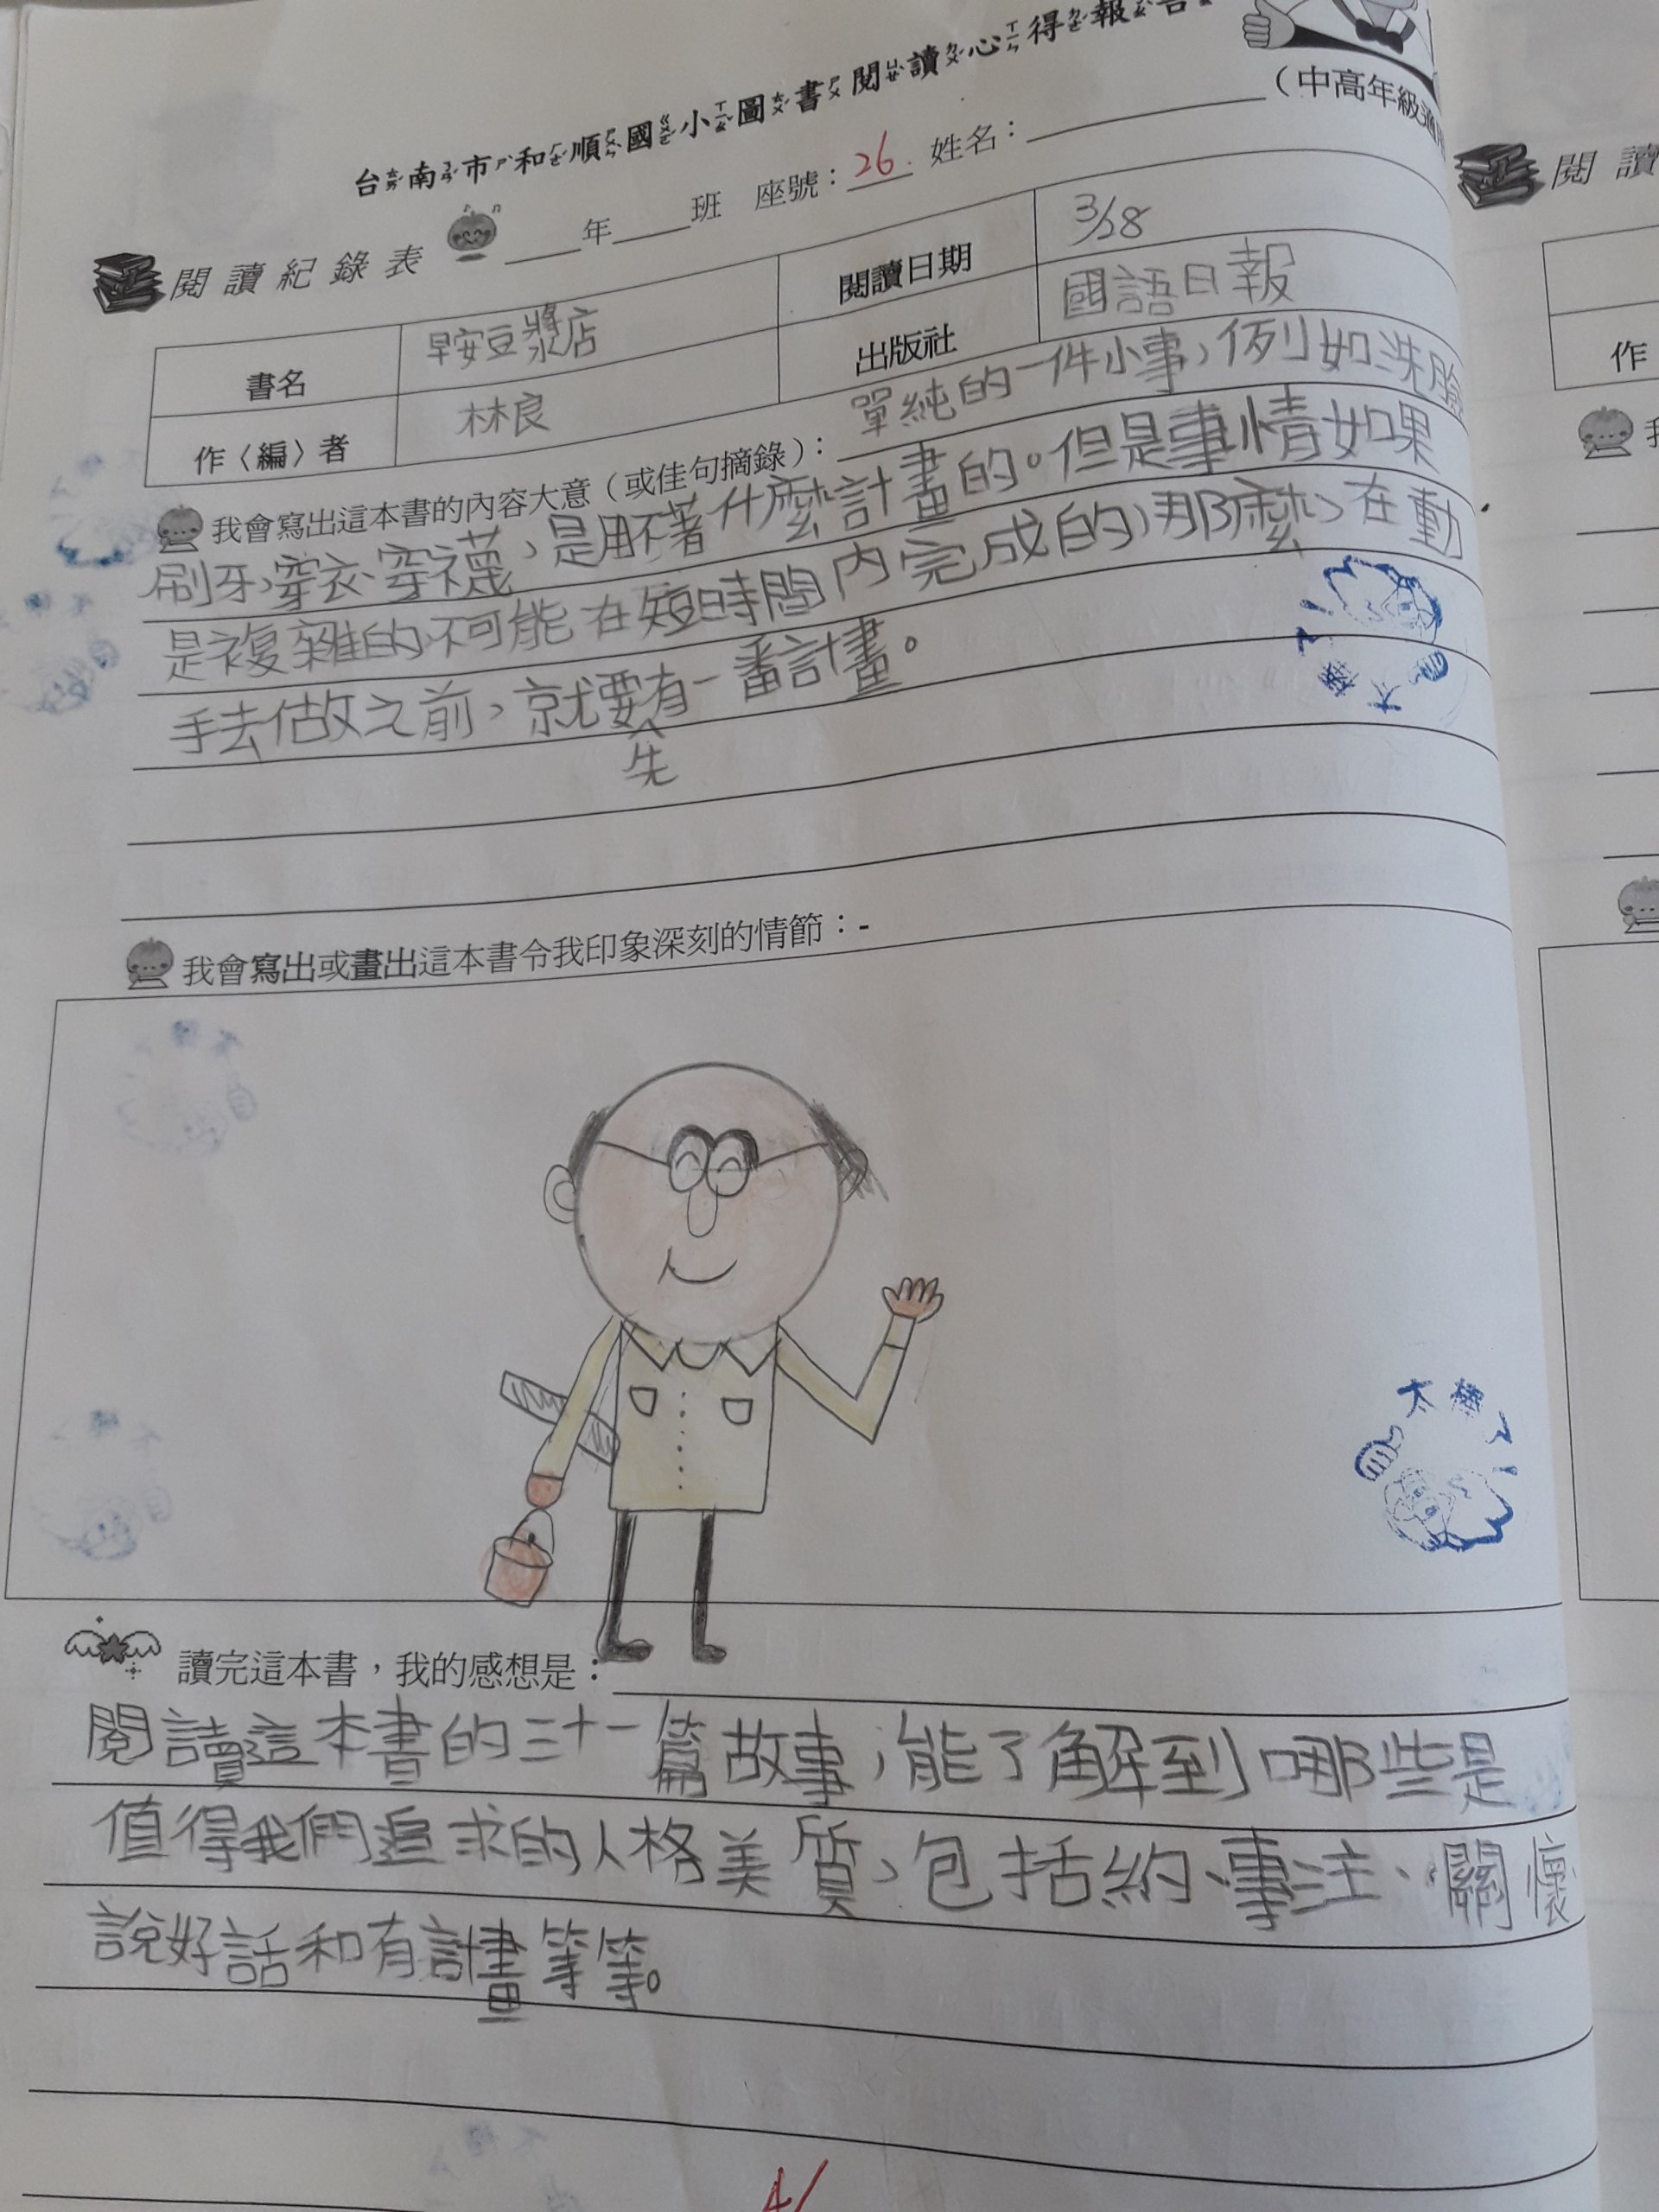 台南市和順國小圖書閱讀心得報告
（中高年級適用
閱讀紀錄表 ____年____班 座號：26 姓名：
書名 早安豆漿店 閱讀日期 3/28
作〈編〉者 林良 出版社 國語日報
我會寫出這本書的內容大意（或佳句摘錄）：單純的一件小事，例如洗臉
刷牙，穿衣、穿襪，是用不著什麼計畫的。但是事情如果
是複雜的不可能在短時間內完成的，那麼，在動
手去做之前，就要先有一番計畫。
太棒
我會寫出或畫出這本書令我印象深刻的情節：-
太棒
讀完這本書，我的感想是：
閱讀這本書的三十一篇故事，能了解到哪些是
值得我們追求的人格美質，包括約、專注、關懷
說好話和有計畫等等。
4/
閱讀
作
我